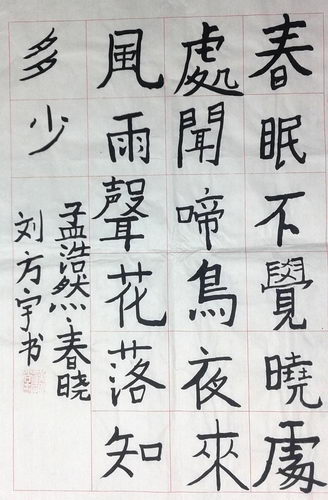 春眠不覺曉處
處聞啼鳥夜來
風雨聲花落知
多少
孟浩然·春晓
刘方宇书